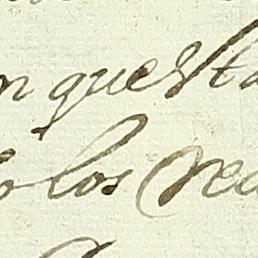 n questa
o los rea